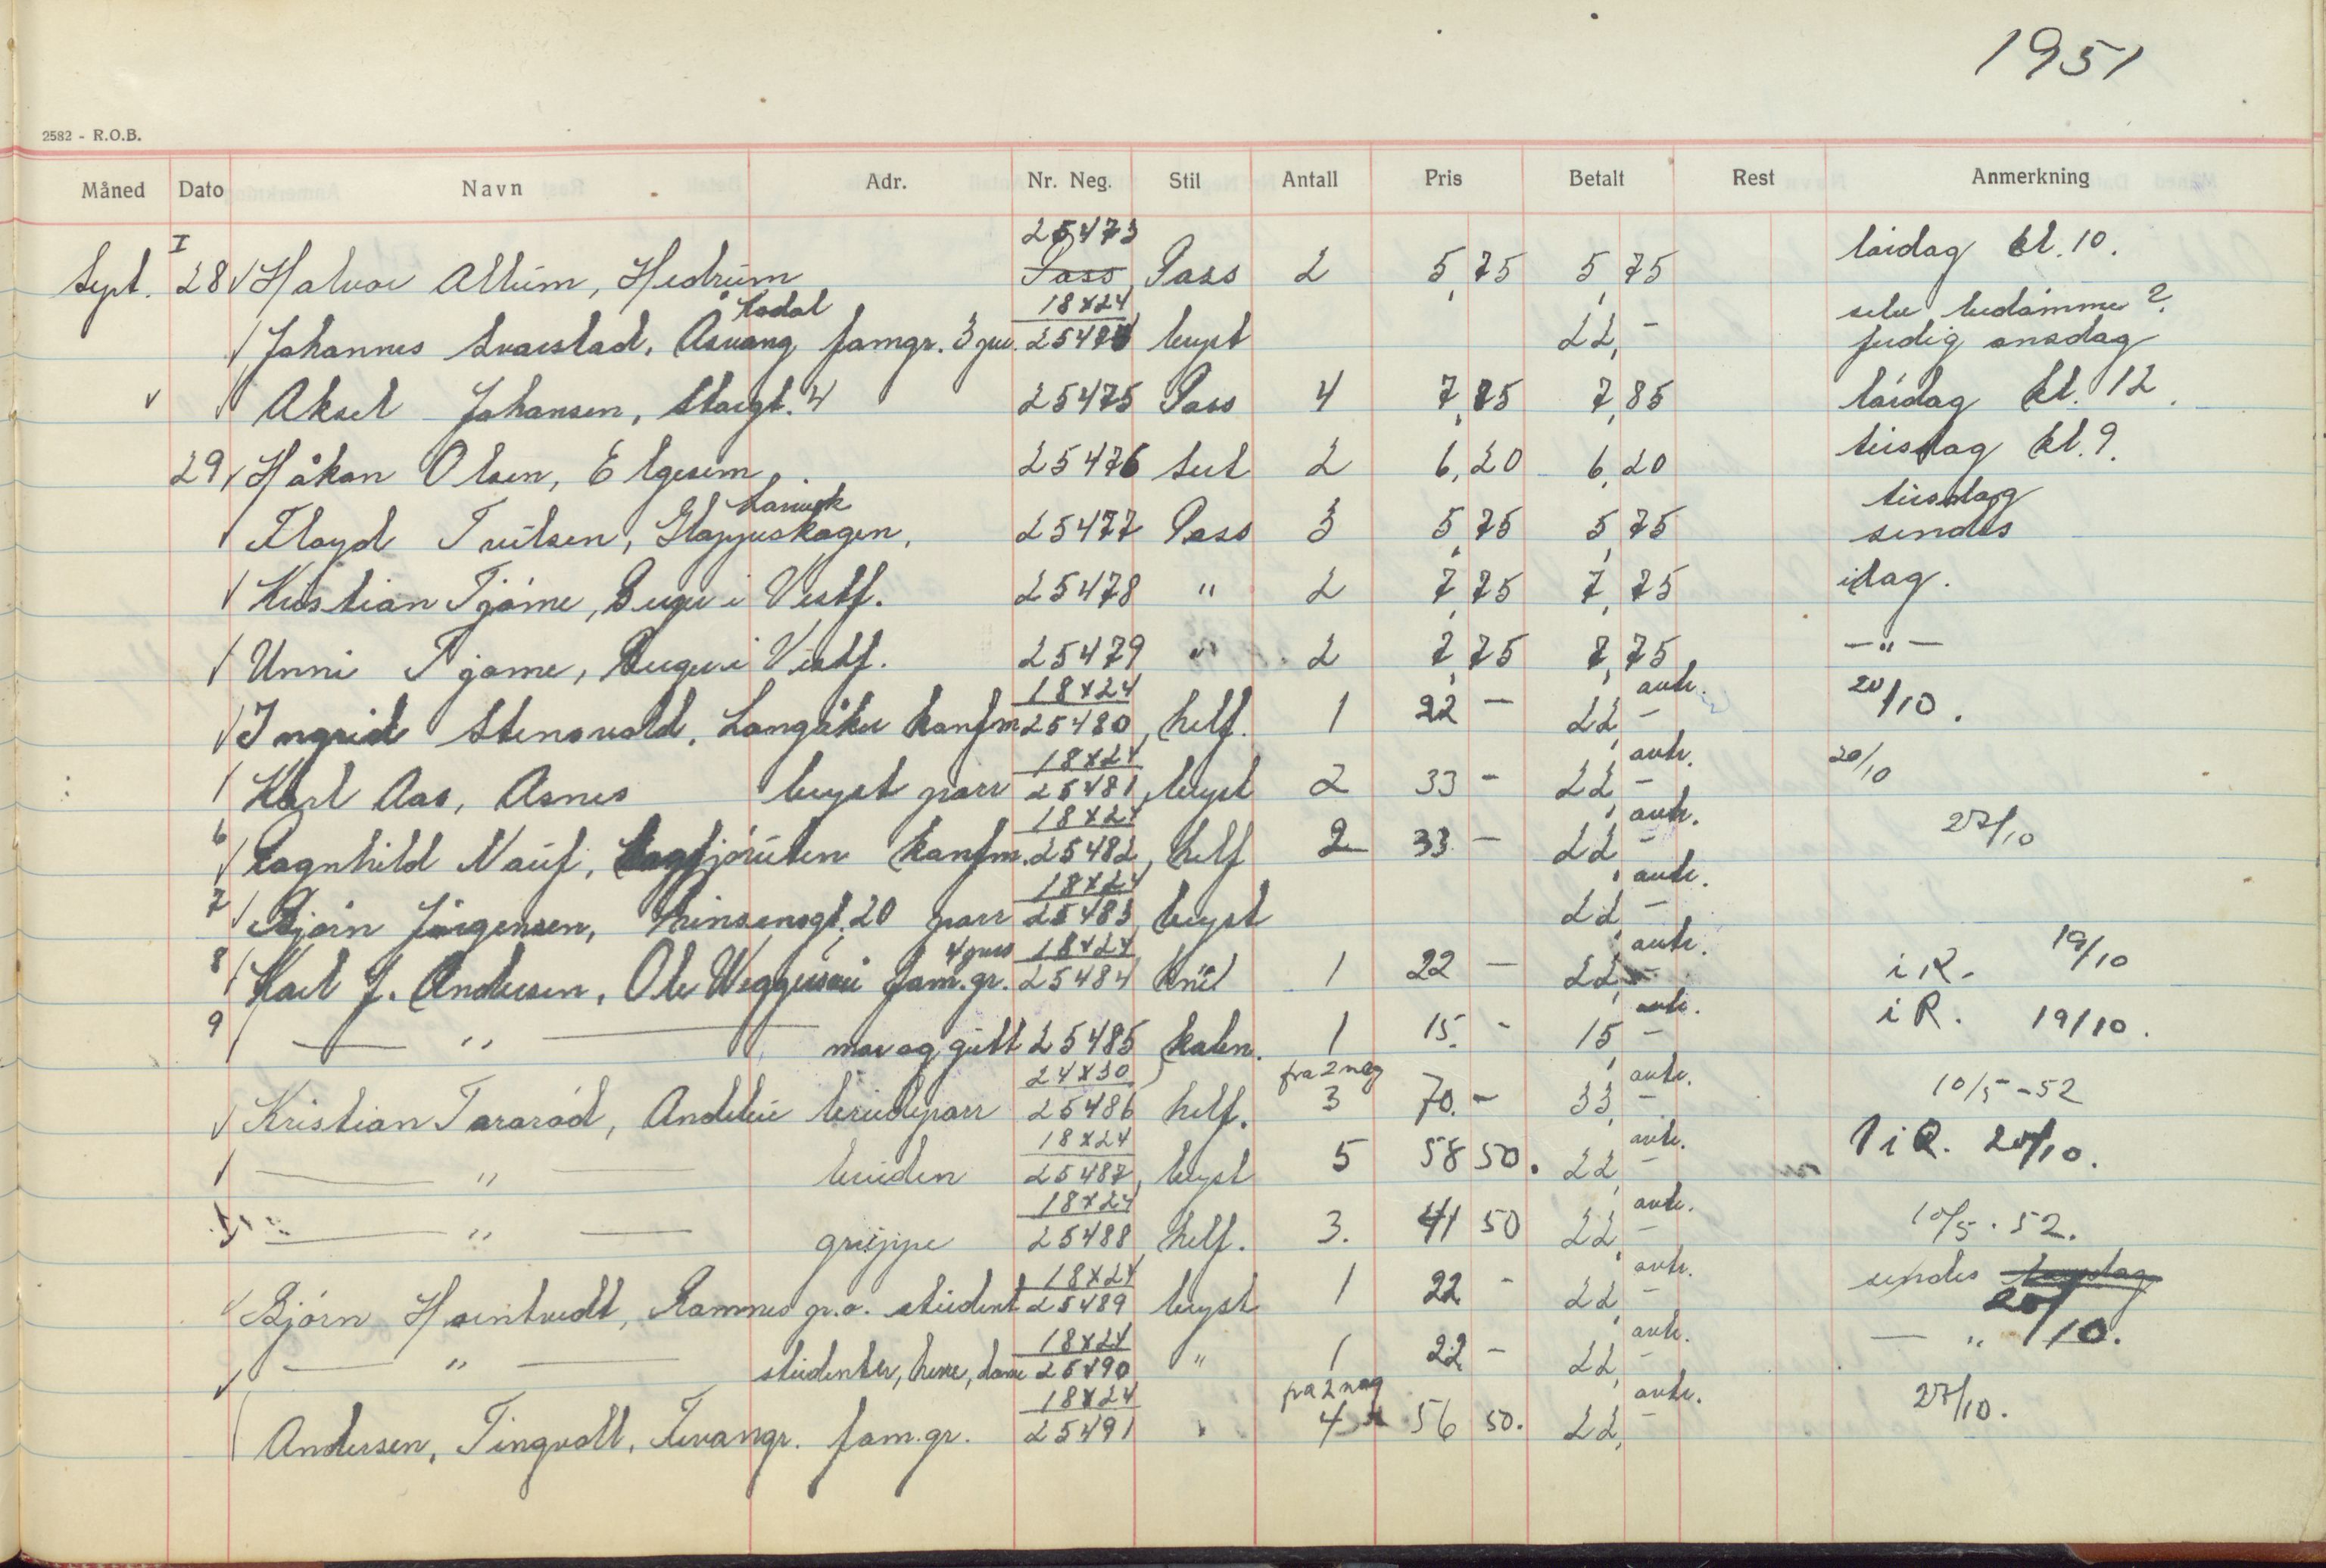 1951
2582 - R.O.B.
Måned Dato Navn Adr. Nr. Neg. Stil Antall Pris Betalt Rest Anmerkning
25473
Sept. I 28 Halvor Allum, Hedrum Pass Pass 2 5,75 5,75 lördag kl. 10.
Kodal 18x24
Johannes Svarstad, Åsvang famgr. 3 pers. 25474 bryst 22,- ferdig onsdag
Aksel Johansen, Storgt. 4 25475 Pass 4 7,85 7,85 lördag kl. 12.
29 Håkon Olsen, Elgesem 25476 2 6,20 6,20 tirsdag kl. 9.
Larvik tirsdag
Floyd 25477 Pass 3 5,75 5,75 sendes
Kristian Tjöme, Berger i Vestf. 25478 " 2 7,75 7,75 idag.
Unni Tjöme, Berger i Vestf. 25479 " 2 7,75 7,75 -"-
18x24 avbr.
Ingrid Stensvold, Langåker konfm 25480, helf. 1 22 - 22,- 20/10.
18x24 avbr.
Karl Aas, Åsnes bryst parr 25481, bryst 2 33 - 22,- 20/10
18x24 avbr.
6 Ragnhild Nauf, konfm. 25482, helf 2 33 - 22,- 27/10
18x24 avbr.
7 Bjørn Jörgensen, 20 parr 25483, bryst 22,-
4 pers 18x24 avbr.
8 Karl J. Andersen, Ole fam.gr. 25484 knel 1 22 - 22,- i R. 19/10
avbr.
9 — " — mor og gutt 25485 kabn. 1 15.- 15 - i R. 19/10.
24x30 fra 2 neg avbr.
Kristian Tararöd, Andebu brudeparr 25486 helf. 3 70.- 33,- 10/5-52
18x24 avbr.
— " — bruden 25487, bryst 5 58 50. 22,- 1 i R. 20/10.
18x24 avbr.
— " — gruppe 25488, helf. 3. 41 50 22,- 10/5.52.
18x24 avbr.
Bjørn Hointvedt, Ramnes p.o. student 25489 bryst 1 22 - 22,- sendes 20/10.
18x24 avbr.
— " — studenter, herre, dame 25490 " 1 22 - 22,- — "
18x24 fra 2 neg avbr.
Andersen, Tingvoll, Tevangr. fam.gr. 25491 " 4 56 50. 22,- 27/10.